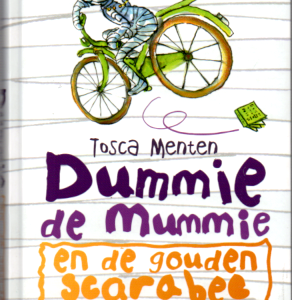 Tosca Menten
Dummie
de mummie
en de gouden
scarabee